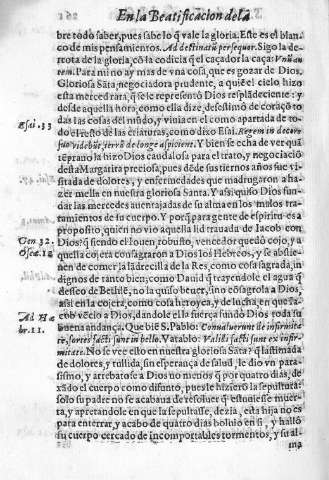 En la Beatificacion de la
bre todo saber, pues sabe lo q̃ vale la gloria. Este es el blan-
co de mis pensamientos. Ad destinatũ persequor. Sigo la de-
rrota de la gloria, cõ la codicia q̃ el caçador la caça: Vnũ au-
tem. Para mi no ay mas de vna cosa, que es gozar de Dios.
Gloriosa Sãta, negociadora prudente, a quiẽ el cielo hizo
esta merced rara, q̃ se le representò Dios resplãdeciente: y
desde aquella hora, como ella dize, desestimò de coraçõ to
das las cosas del mũdo, y viuia en el como apartada de to-
Esai. 33
do el resto de las criaturas, como dixo Esai. Regem in decore
suo videbũt, terrã de longe aspicient. Y bien se echa de ver quã
tẽprano la hizo Dios caudalosa para el trato, y negociaciõ
desta Margarita preciosa, pues dẽde sus tiernos años fue vi
sitada de dolores, y enfermedades que madrugaron a ha-
zer mella en nuestra gloriosa Santa. Y assi quiso Dios fun-
dar las mercedes auentajadas de su alma en los malos tra-
tamientos de su cuerpo. Y porq̃ para gente de espiritu es a
proposito, quien no vio aquella lid trauada de Iacob con
Gen. 32.
Dios? q̃ siendo el louen robusto, vencedor quedò cojo, y a
Osea. 12
aquella cojera consagraron a Dios los Hebreos, y se abstie-
nen de comer la lãdrecilla de la Res, como cosa sagrada, in
dignos de tanto bien; como Dauid q̃ trayendole el agua q̃
desseo de Bethlẽ, no la quiso beuer, sino cõsagrola a Dios,
assi en la cojera, como cosa heroyca, y de lucha, en que Ia-
cob vẽcio a Dios, dandole ella fuerça fundò Dios toda su
Ad Hæ
br. 11.
buena andança. Que biẽ S. Pablo: Conualuerunt de infirmita-
te, fortes facti sunt in bello. Vatablo: Validi facti sunt ex infir-
mitate. No se vee esto en nuestra gloriosa Sãta? q̃ lastimada
de dolores, y tullida, sin esperança de salud, le dio vn para-
sismo, y arrebatose a Dios no menos q̃ por quatro dias, de
xãdo el cuerpo como difunto, pues le hizierõ la sepultura:
solo su padre no se acabaua de resoluer q̃ estuuiesse muer-
ta, y apretandole en que la sepultasse, dezia, esta hija no es
para enterrar, y acabo de quatro dias boluio en si, y hallò
su cuerpo cercado de incomportables tormentos, y su al-
ma